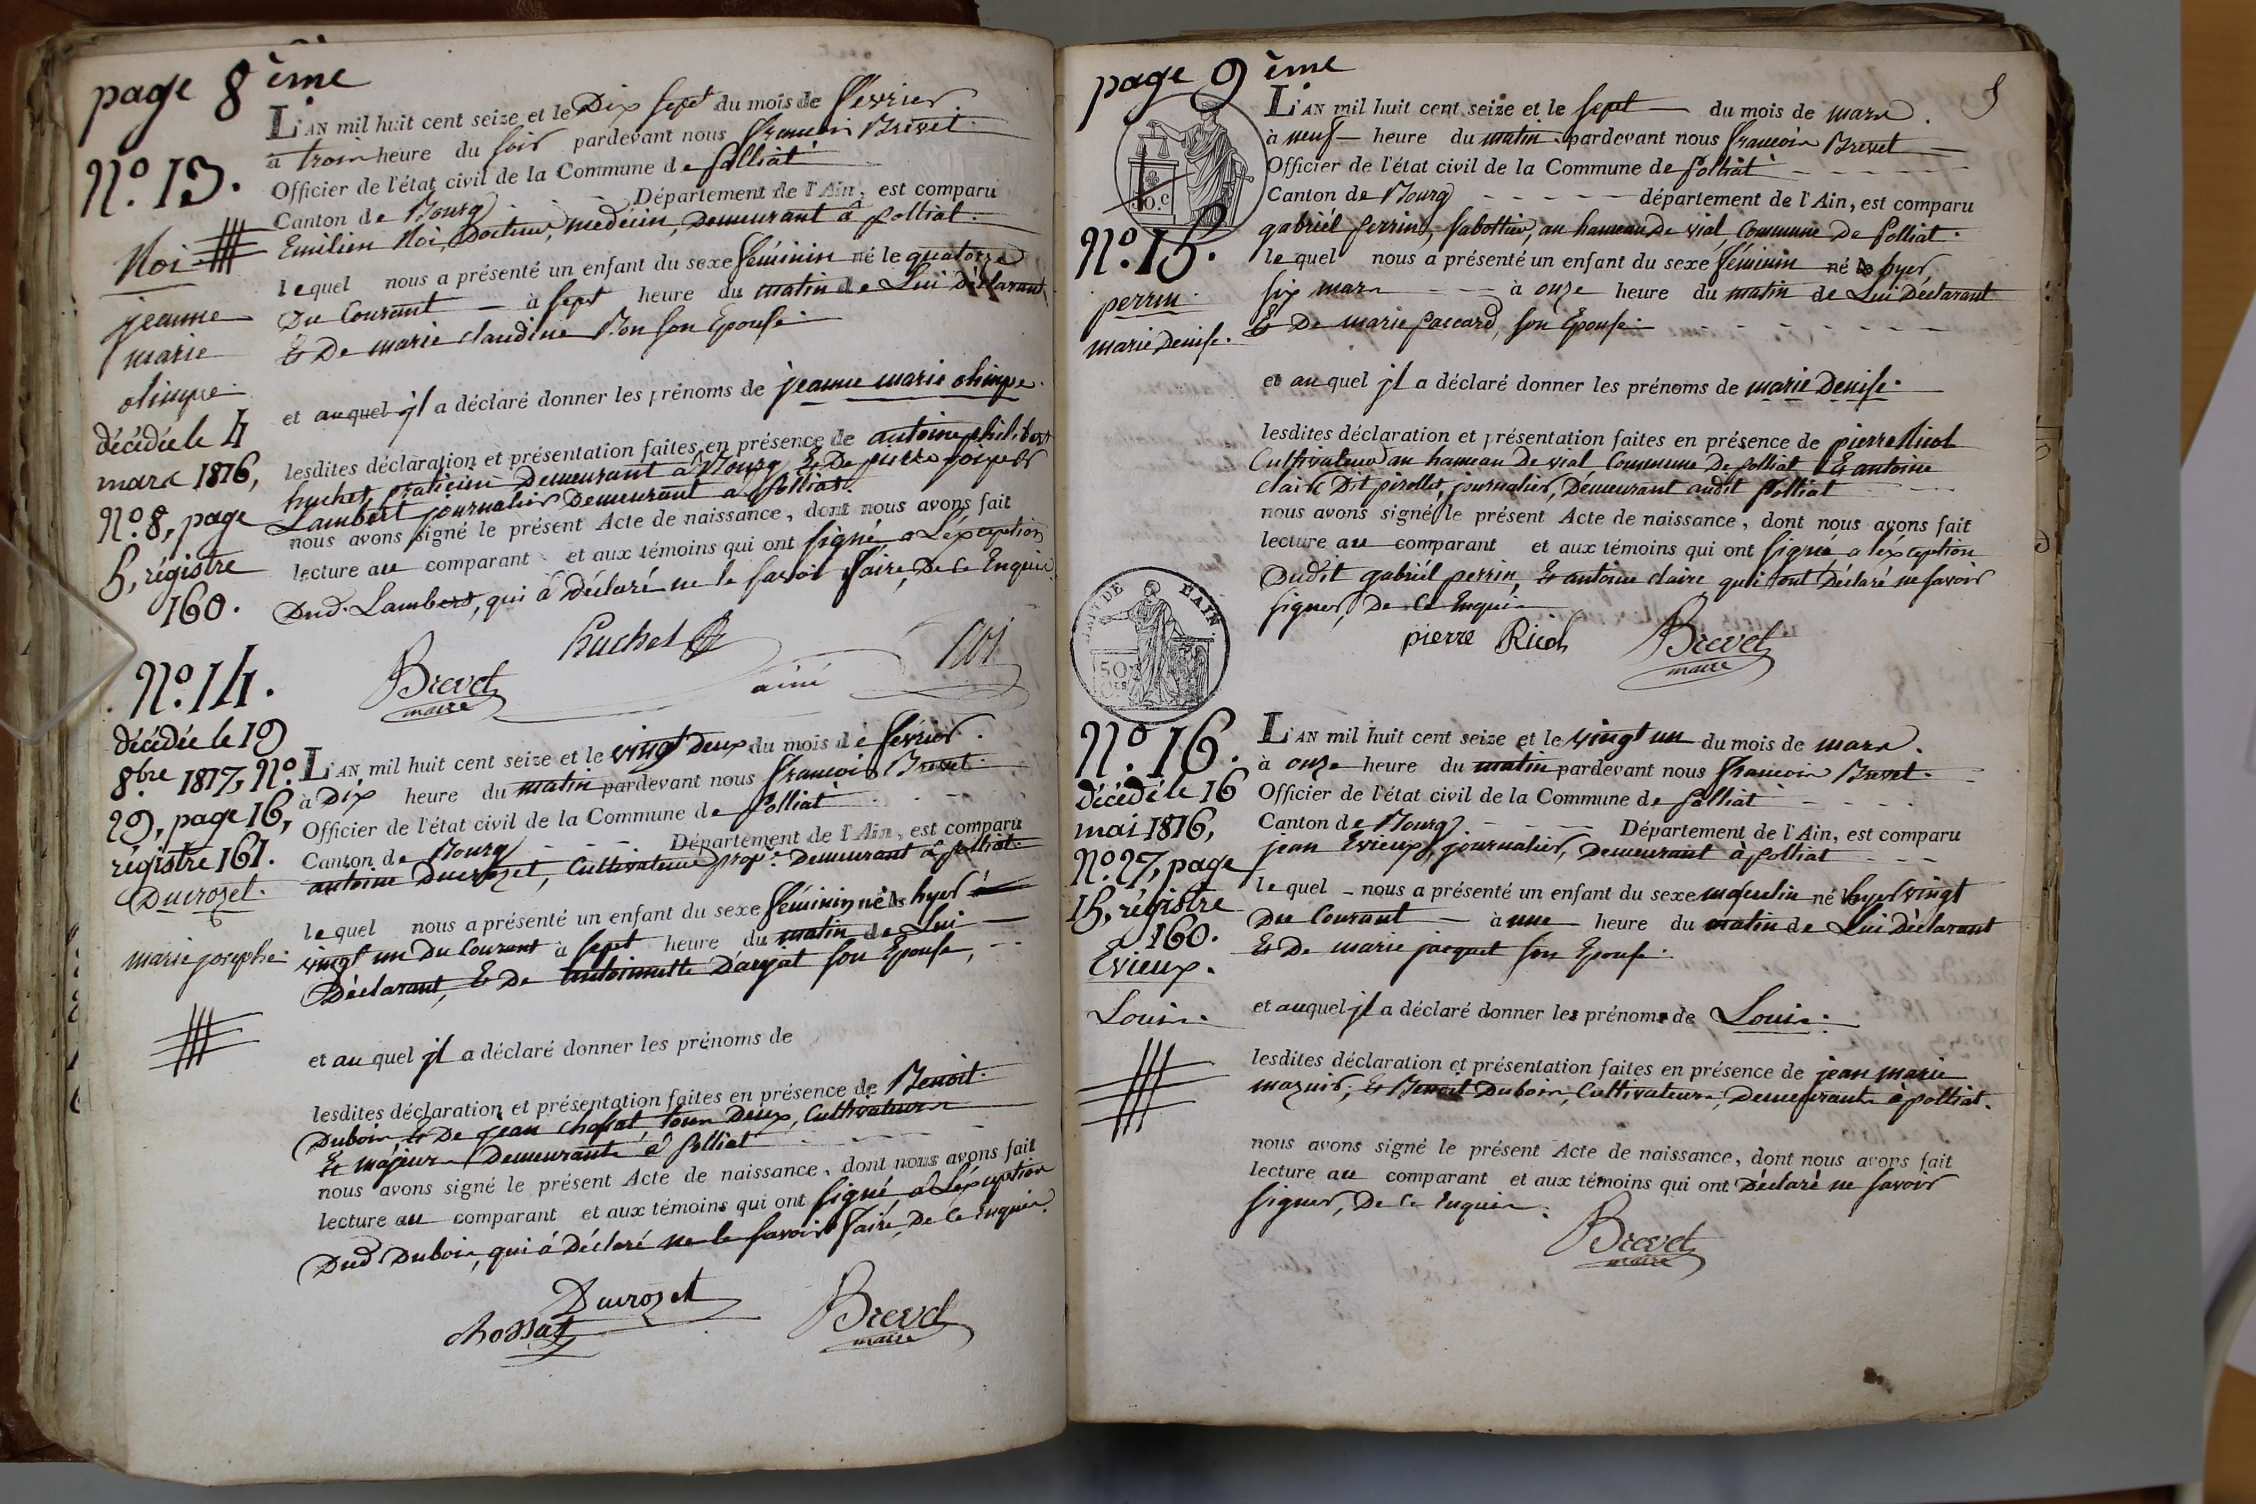 page 8 ème
N.o 13.
Noi
jeanne
marie
olimpe.
décédée le 4
mars 1816,
N.o 8, page
5, régistre
160.
L'AN mil huit cent seize et le Dix sept du mois de février.
à trois heure du soir pardevant nous françois Brevet.
Officier de l'état civil de la Commune de polliat
Canton de Bourg Département de l'Ain, est comparu
Emilien Noi, Docteur, medecin, Demeurant à polliat.
lequel nous a présenté un enfant du sexe féminin né le quatorze
Du Courant à sept heure du matin de Lui Déclarant
Et De marie claudine Bon son Epouse.
et auquel jl a déclaré donner les prénoms de jeanne marie olimpe.
lesdites déclaration et présentation faites en présence de antoine philibert
huchet, praticien Demeurant à Bourg Et De pierre joseph
Lambert journalier Demeurant à polliat.
nous avons signé le présent Acte de naissance, dont nous avons fait
lecture au comparant et aux témoins qui ont signé a L'éxception
Dud. Lambert, qui à Déclaré ne le savoir faire, De ce Enquis.
huchet
Brevet
maire
ainé
Noi
N.o 14.
décédée le 19
8bre 1817, N.o
29, page 16,
régistre 161.
Ducrozet.
marie josephe.
L'AN mil huit cent seize et le vingt Deux du mois de février.
à Dix heure du matin pardevant nous françois Brevet.
Officier de l'état civil de la Commune de polliat
Canton de Bourg Département de l'Ain, est comparu
antoine Ducrozet, Cultivateur prop.re Demeurant à polliat.
lequel nous a présenté un enfant du sexe féminin né le hyer
vingt un Du Courant à sept heure du matin de Lui
Déclarant, Et De antoinette Dargat son Epouse,
et au quel jl a déclaré donner les prénoms de
lesdites déclaration et présentation faites en présence de Benoit
Dubois Et De jean chossat, tous Deux, Cultivateurs
Et majeurs Demeurants à polliat
nous avons signé le présent Acte de naissance, dont nous avons fait
lecture au comparant et aux témoins qui ont signé, a L'éxception
Dud. Dubois, qui à Déclaré ne le savoir faire, De ce Enquis.
Ducrozet
chossat
Brevet
maire
page 9 ème
5
50.c
N.o 15.
perrin.
marie Denise.
L'AN mil huit cent seize et le sept du mois de mars.
à neuf heure du matin pardevant nous françois Brevet
Officier de l'état civil de la Commune de polliat
Canton de Bourg département de l'Ain, est comparu
gabriél perrin, sabottier, au hameau De vial, Commune De polliat.
lequel nous a présenté un enfant du sexe féminin né le hyer,
six mars à onze heure du matin de Lui Déclarant
Et De marie paccard, son Epouse.
et au quel jl a déclaré donner les prénoms de marie Denise.
lesdites déclaration et présentation faites en présence de pierre Ricol
Cultivateur au hameau De vial Commune De polliat Et antoine
claire Dit pirollet, journalier, Demeurant audit polliat
nous avons signé le présent Acte de naissance, dont nous avons fait
lecture au comparant et aux témoins qui ont signé a l'éxception
Dudit gabriél perrin, Et antoine claire qui ont Déclaré ne savoir
signer, De Ce Enquis
pierre Ricol
Brevet
maire
DE L'AIN
50
N.o 16.
décédé le 16
mai 1816,
N.o 27, page
15, régistre
160.
Evieux.
Louis.
L'AN mil huit cent seize et le vingt un du mois de mars.
à onze heure du matin pardevant nous françois Brevet.
Officier de l'état civil de la Commune de polliat
Canton de Bourg Département de l'Ain, est comparu
jean Evieux, journalier, Demeurant à polliat
lequel nous a présenté un enfant du sexe masculin né hyer vingt
Du Courant à une heure du matin de Lui Déclarant
Et De marie jacquet son Epouse.
et auquel jl a déclaré donner les prénoms de Louis.
lesdites déclaration et présentation faites en présence de jean marie
maznir, Et Benoit Dubois, Cultivateurs, Demeurants à polliat.
nous avons signé le présent Acte de naissance, dont nous avons fait
lecture au comparant et aux témoins qui ont Déclaré ne savoir
signer, De Ce Enquis.
Brevet
maire